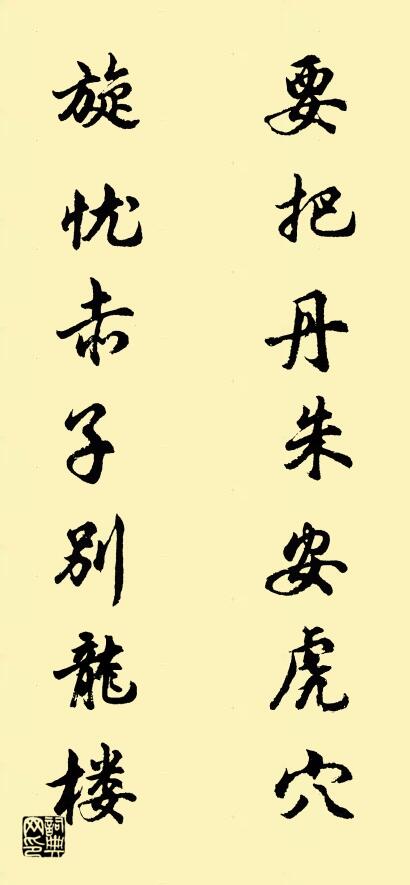 要把丹朱安虎穴
旋忧赤子别龍楼
詞典网印